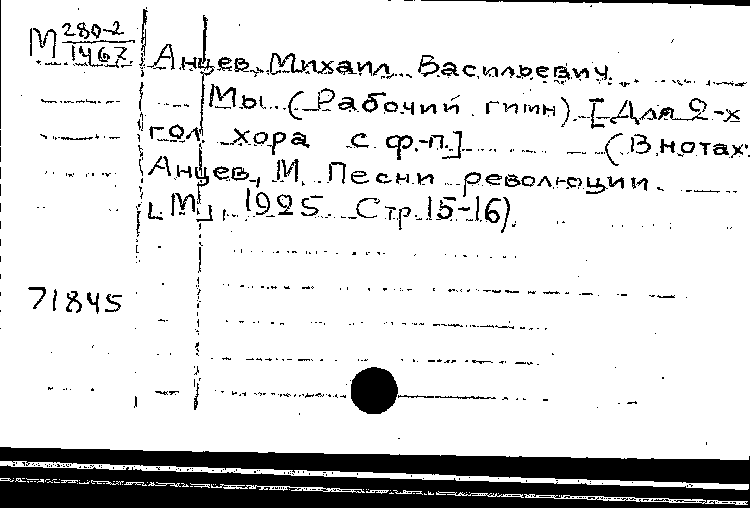 М 280-2
1467
Анцев, Михаил Васильевич.
Мы (Рабочий гимн). [Для 2-х
гол. хора с ф.-п.] (В нотах:
Анцев, М. Песни революции.
[М], 1925. Стр. 15-16).
71845